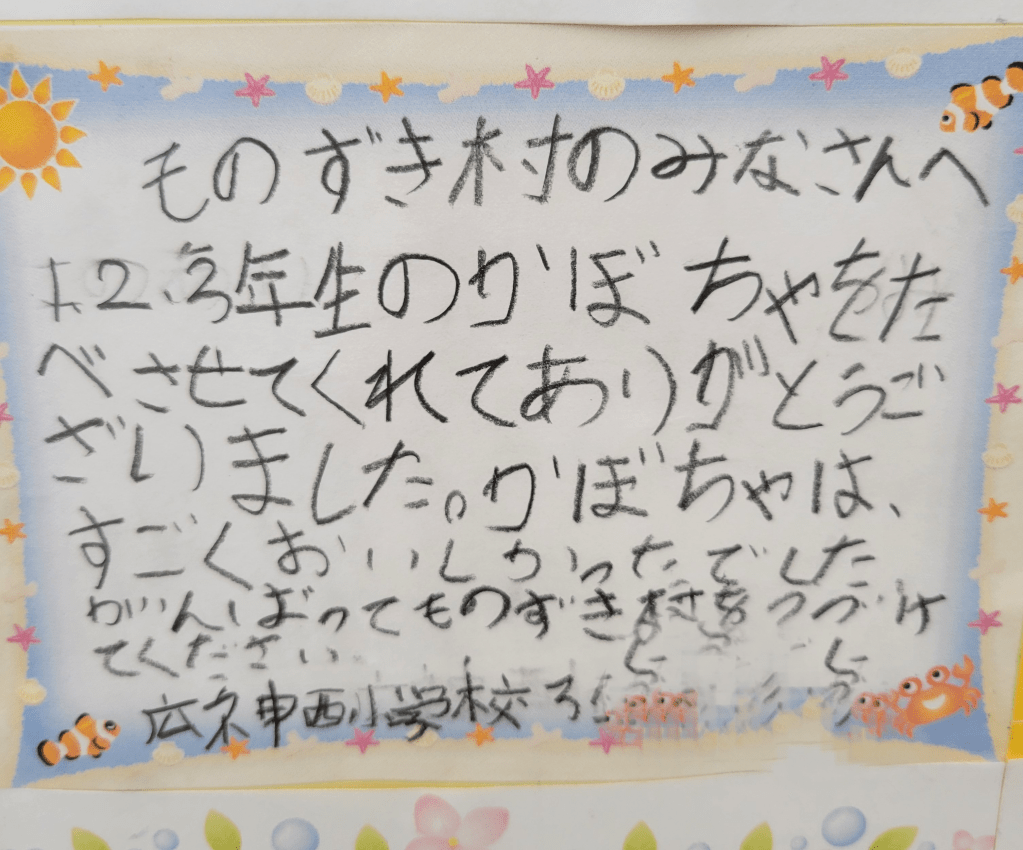 ものずき村のみなさんへ
1.2.3年生のかぼちゃをた
べさせてくれてありがとうご
ざいました。かぼちゃは、
すごくおいしかったでした
がんばってものずき村をつづけ
てください
広神西小学校 3